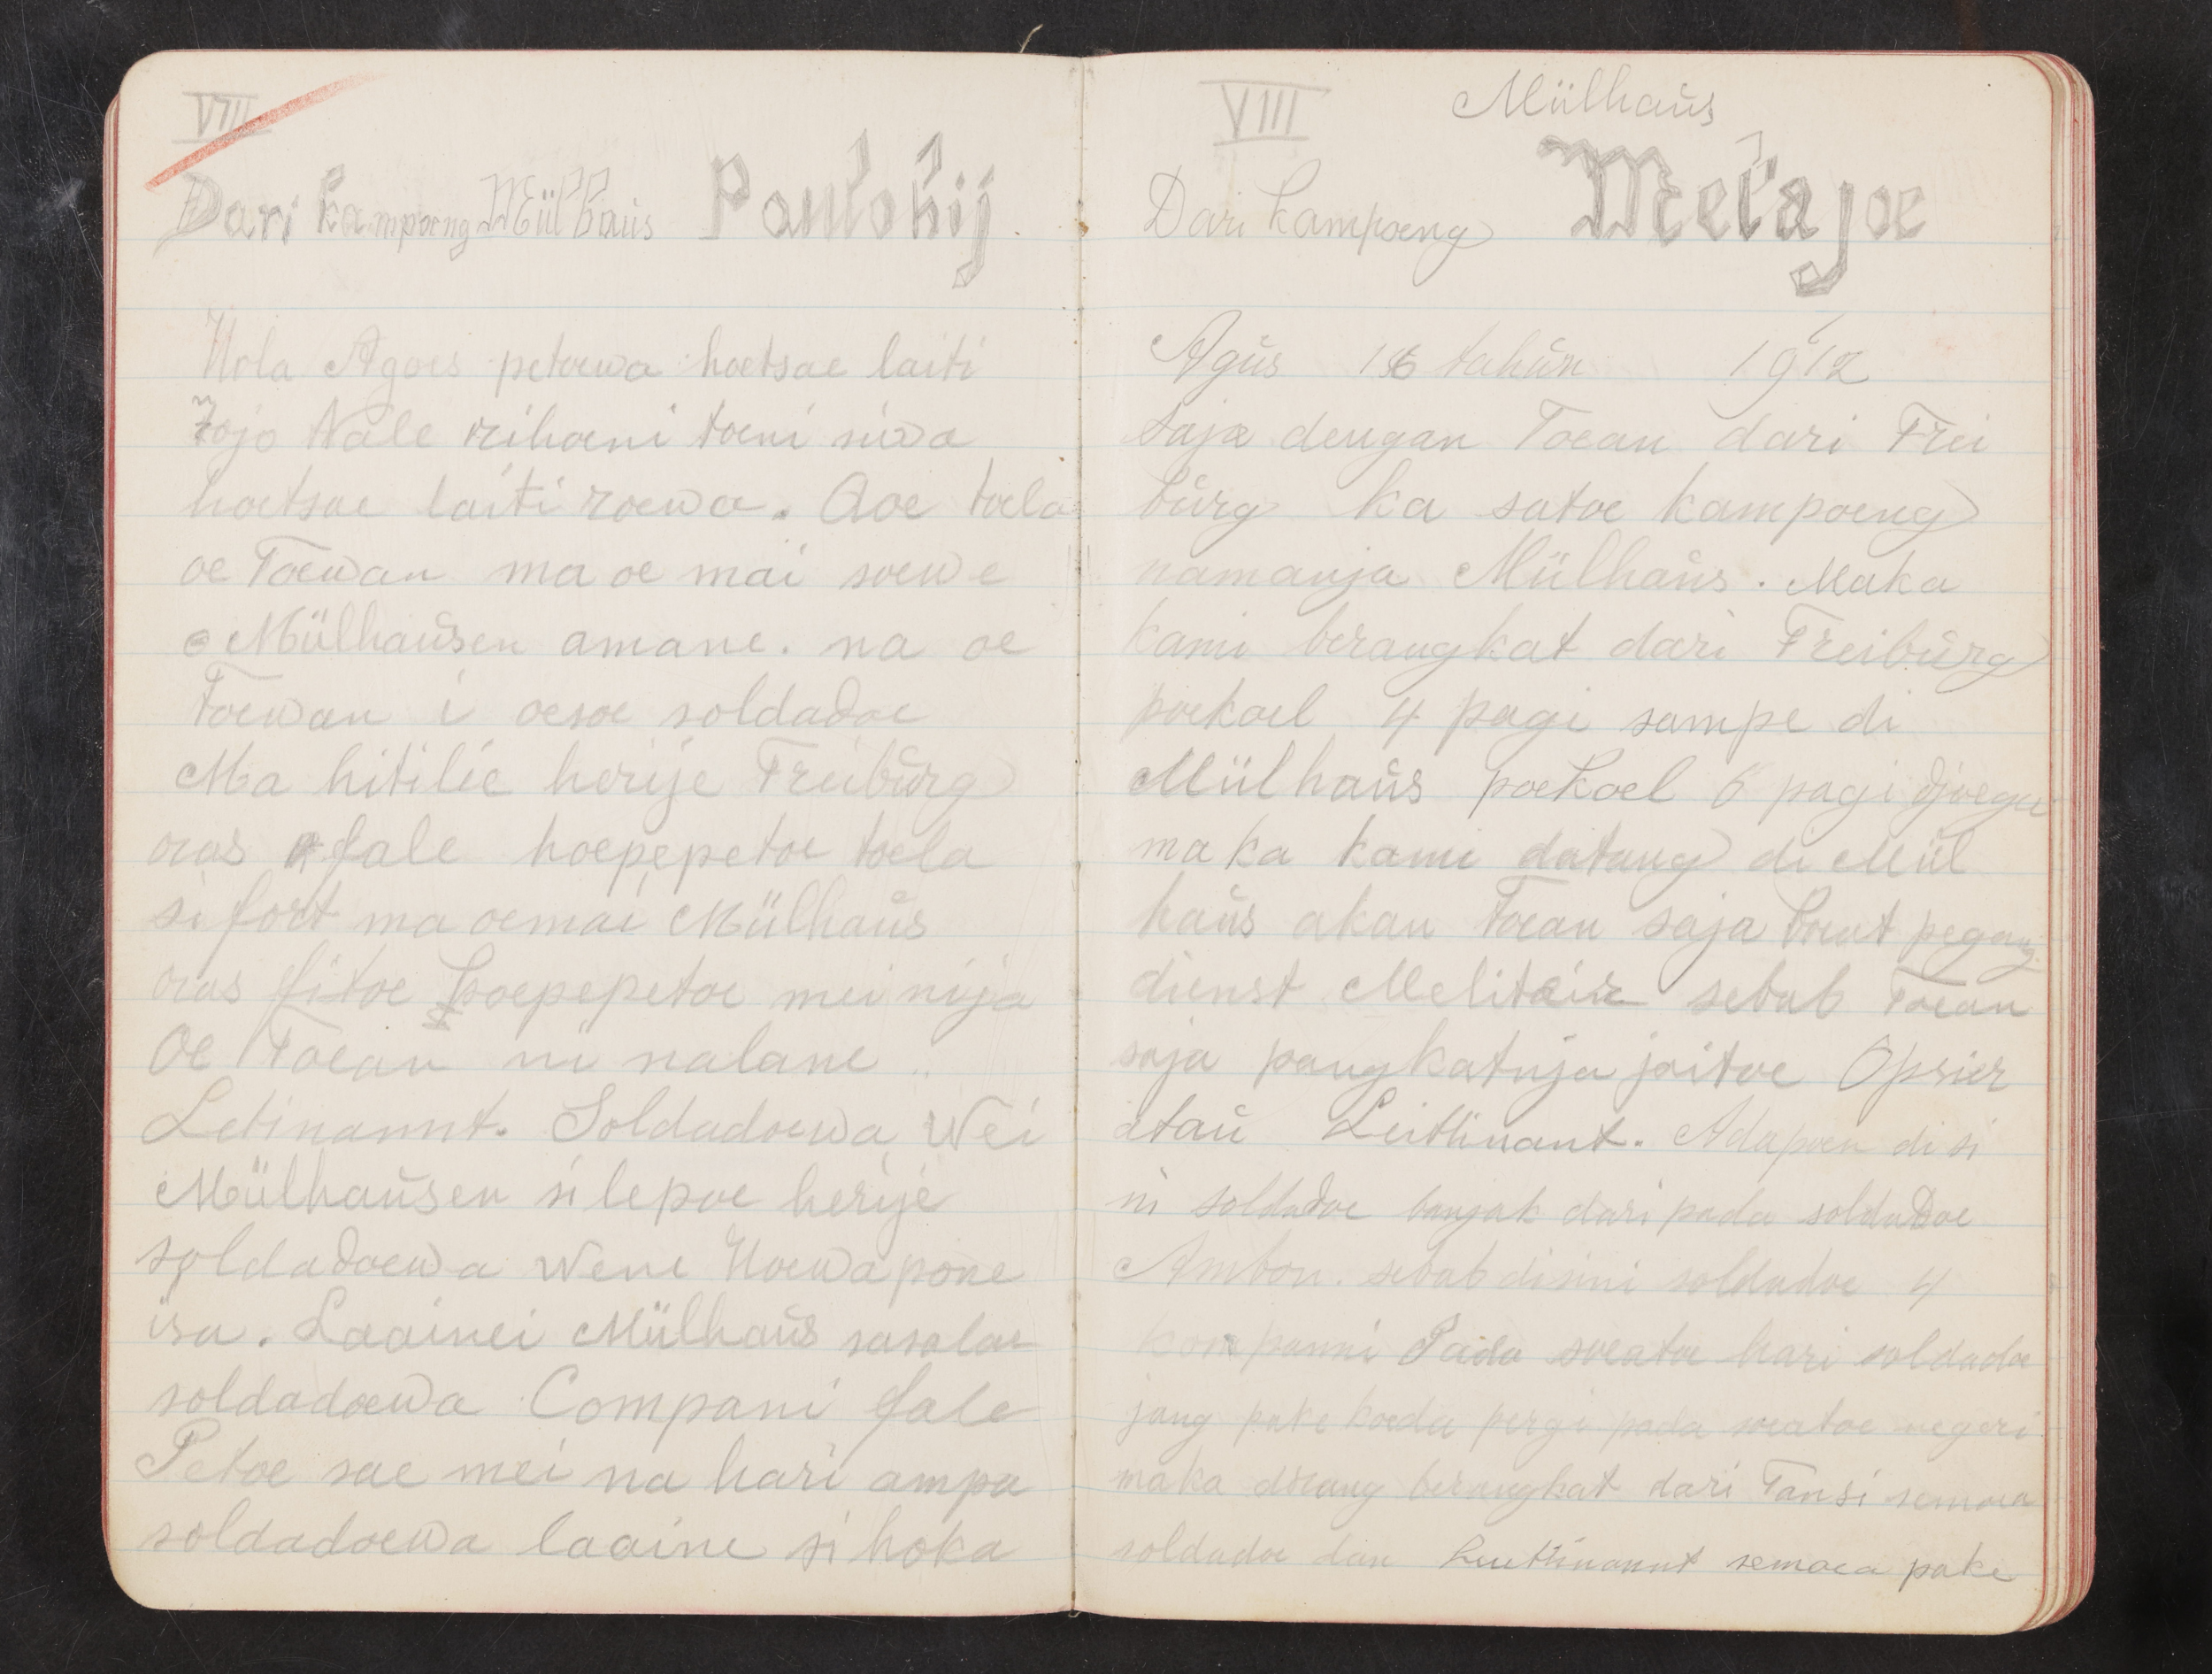 VIII
Dari kampoeng Mülhaus Paulohij.
Hola Agoes petoewa hoetsae laiti
Jojo Nale rihoeni toeni siwa
hoetsae laiti roewa. Aoe toela
oe Toewan ma oe mai soewe
e Mülhaŭsen amane. na oe
Toewan i oesoe soldadoe
Ma hitilie herije Freibŭrg
oras fale hoepepetoe toela
si fort ma oemai Mülhaŭs
oras fitoe hoepepetoe mei nija
Oe Toean ni nalane
Letinannt. Soldadoewa Wei
Mülhaŭsen si lepoe herije
soldadoewa Wene Noewa pone
isa. Laainei Mülhaŭs sasolae
soldadoewa Compani fale
Petoe sae mei na hari ampa
soldadoewa laaine si hoka
VIII Mülhaŭs
Dari kampoeng Melajoe
Agŭs 16 tahŭn 1912
saja dengan Toean dari Frei
bŭrg ka satoe kampoeng
namanja Mülhaŭs. Maka
kami berangkat dari Freibŭrg
poekoel 4 pagi sampe di
Mülhaŭs poekoel 6 pagi djoega
maka kami datang di Mül
haŭs akan Toean saja toeut pegang
dienst Melitair sebab Toean
saja pangkatnja jaitoe Opsier
ataŭ Leittinant. Adapoen di si
ni soldadoe banjak dari pada soldadoe
Ambon. sebab disini soldadoe 4
kompanni Pada soeatoe hari soldadoe
jang pake koeda pergi pada soeatoe negeri
maka dorang berangkat dari Tansi semoea
soldadoe dan Leuttinannt semoea pake